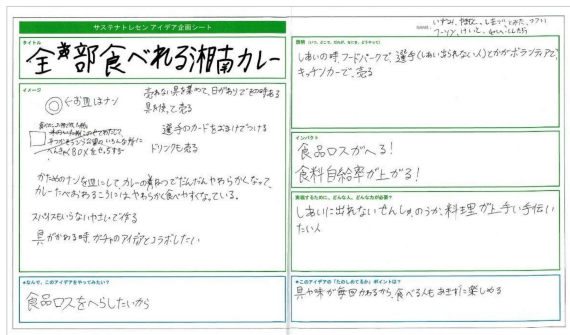 サステナトレセン アイデア企画シート
NAME:
タイトル
全部食べれる湘南カレー
イメージ
←お皿はナン
売れない具を集めて、日がありでその時ある
具を使って売る
選手のカードをおまけでつける
ドリンクも売る
かためのナンを皿にして、カレーの熱でだんだんやわらかくなって、
カレーたべおわるころにはやわらかく食べやすくなっている。
スパイスもいらないやさいで作る
具がかわる時、ガチャのアイデアとコラボしたい
★なんで、このアイデアをやってみたい?
食品ロスをへらしたいから
説明(いつ、どこで、だれが、なにを、どうやって)
しあいの時フードパークで、選手(しあい出られない人)とかがボランティアで、
キッチンカーで、売る
インパクト
食品ロスがへる!
食料自給率が上がる!
実現するために、どんな人、どんな力が必要?
しあいに出れないせんしゅ、のうか、料理が上手い手伝い
たい人
★このアイデアの「たのしめてるか」ポイントは?
具や味が毎回かわるから、食べる人もあきずに楽しめる